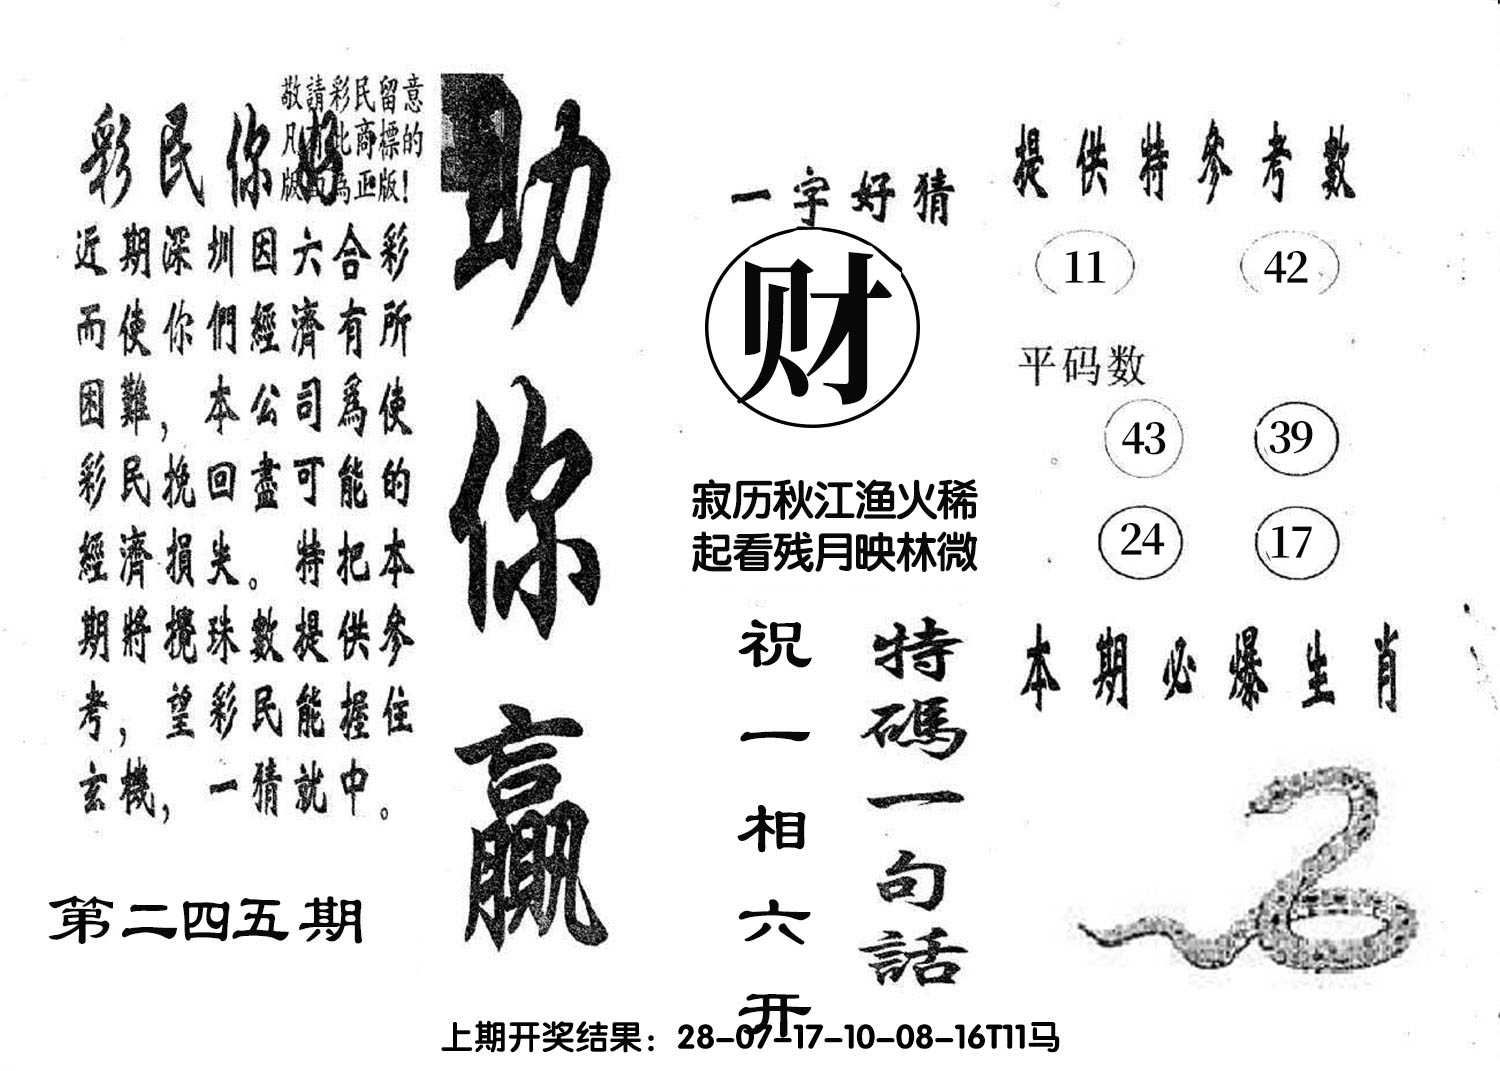 敬請彩民留意
凡有此商標的
版面為正版!
彩民你好
近期深圳因六合彩
而使你們經濟有所
困難，本公司爲使
彩民挽回盡可能的
經濟損失。特把本
期將攪珠數提供參
考，望彩民能握住
玄機，一猜就中。
第二四五期
助你贏
一字好猜
财
寂历秋江渔火稀
起看残月映林微
特碼一句話
祝一相六开
提供特參考數
11 42
平码数
43 39
24 17
本期必爆生肖
上期开奖结果：28-07-17-10-08-16T11马